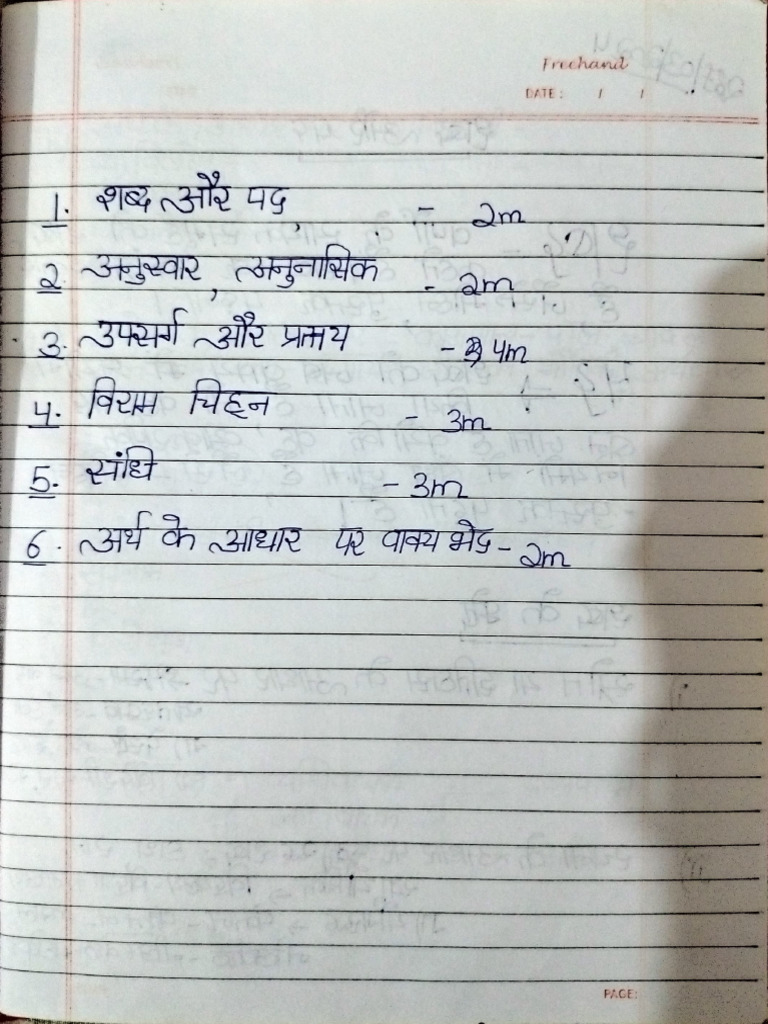 Freehand
DATE: / /
1. शब्द और पद - 2m
2. अनुस्वार, अनुनासिक - 2m
3. उपसर्ग और प्रत्यय - 4m
4. विराम चिह्न - 3m
5. संधि - 3m
6. अर्थ के आधार पर वाक्य भेद - 2m
PAGE: